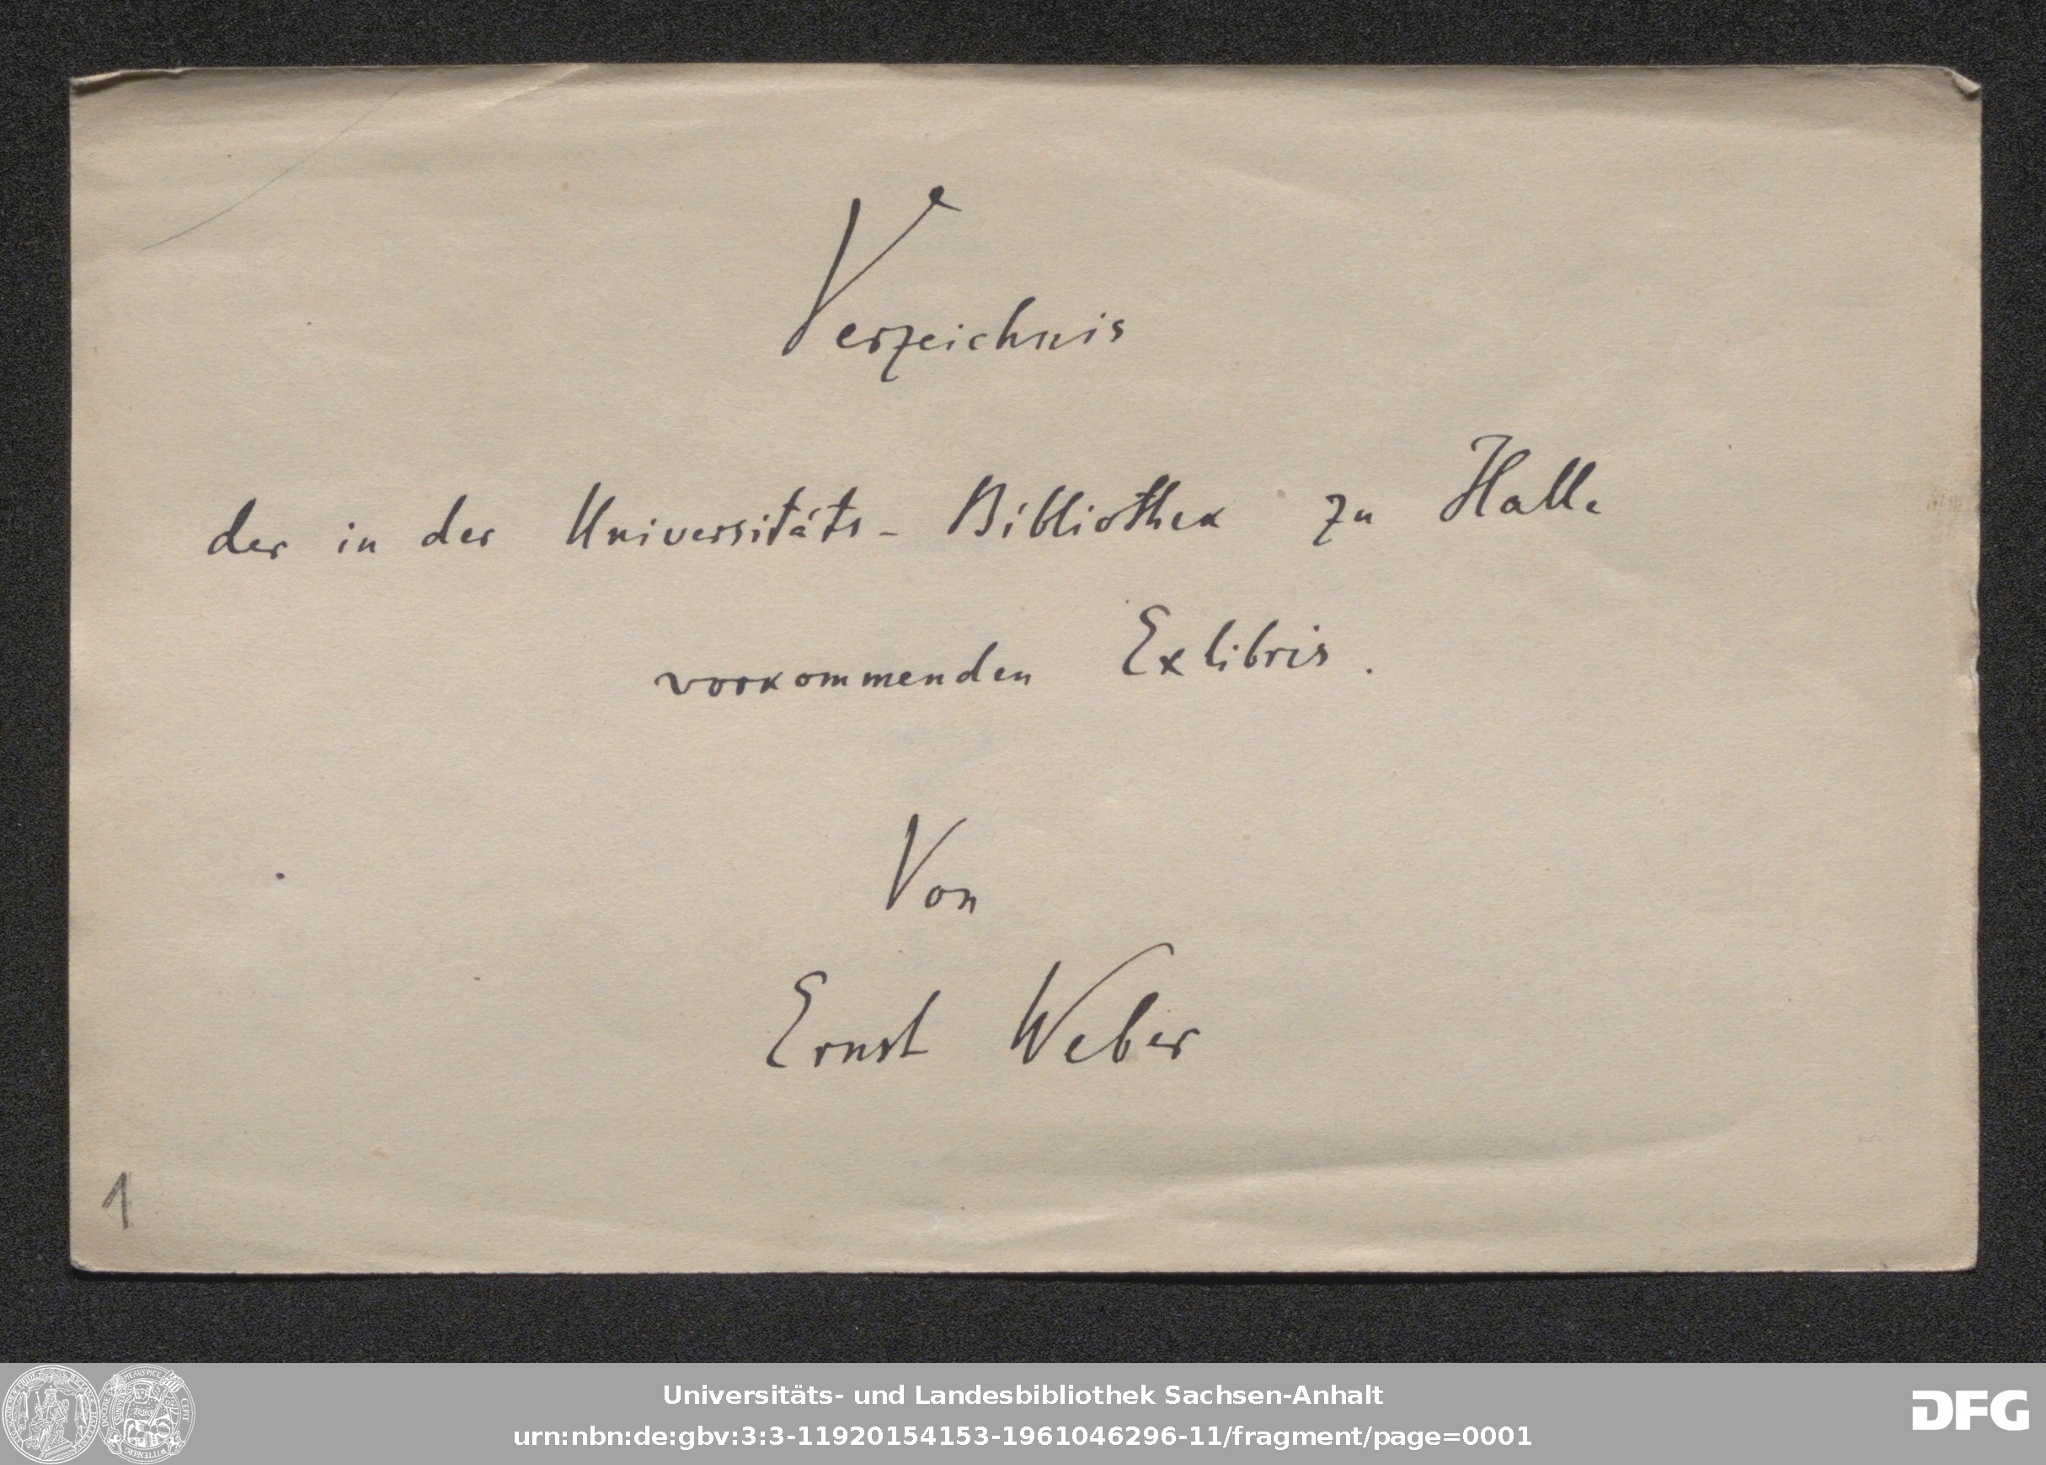 Verzeichnis
der in der Universitäts-Bibliothek zu Halle
vorkommenden Exlibris.
Von
Ernst Weber
1
Universitäts- und Landesbibliothek Sachsen-Anhalt
urn:nbn:de:gbv:3:3-11920154153-1961046296-11/fragment/page=0001
DFG